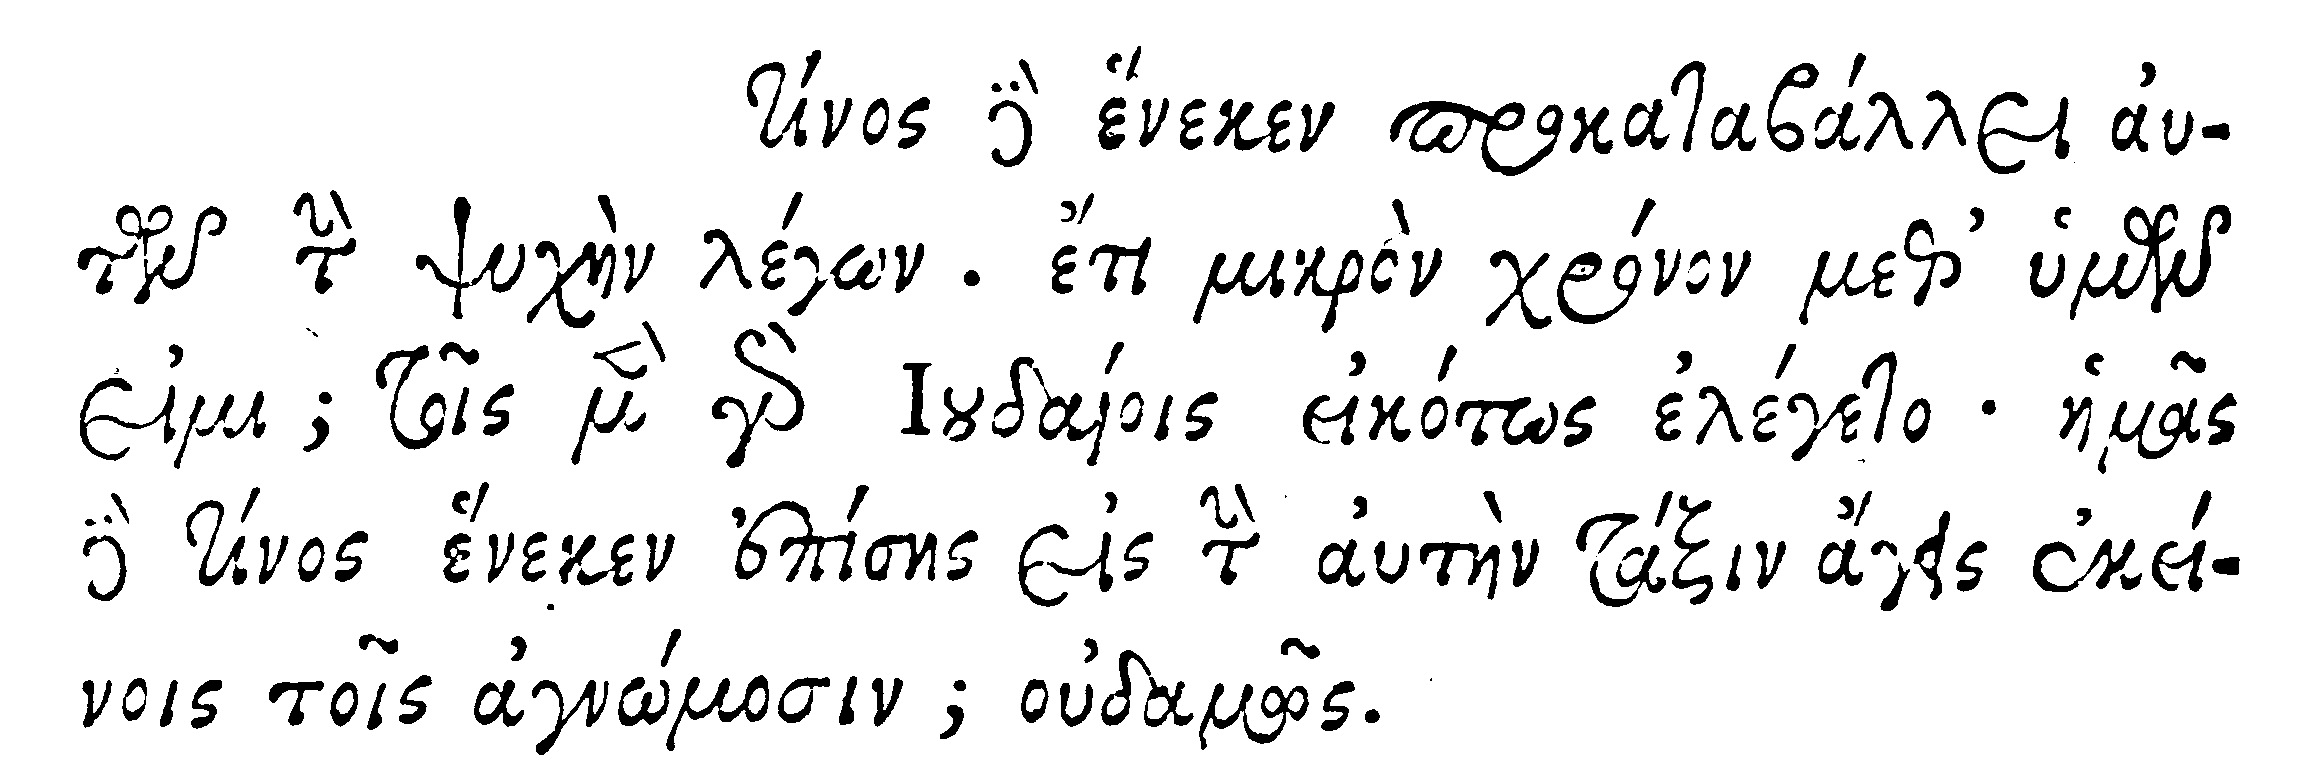 τίνος δὲ ἕνεκεν προκαταβάλλει ἀυ-
τῶν τὴν ψυχὴν λέγων . ἔτι μικρὸν χρόνον μεθ’ ὑμῶν
εἰμι ; τοῖς μὲν γὰρ Ιουδαίοις εἰκότως ἐλέγετο · ἡμᾶς
δὲ τίνος ἕνεκεν ἐπίσης εἰς τὴν ἀυτὴν τάξιν ἄγεις ἐκεί-
νοις τοῖς ἀγνώμοσιν ; οὐδαμῶς.